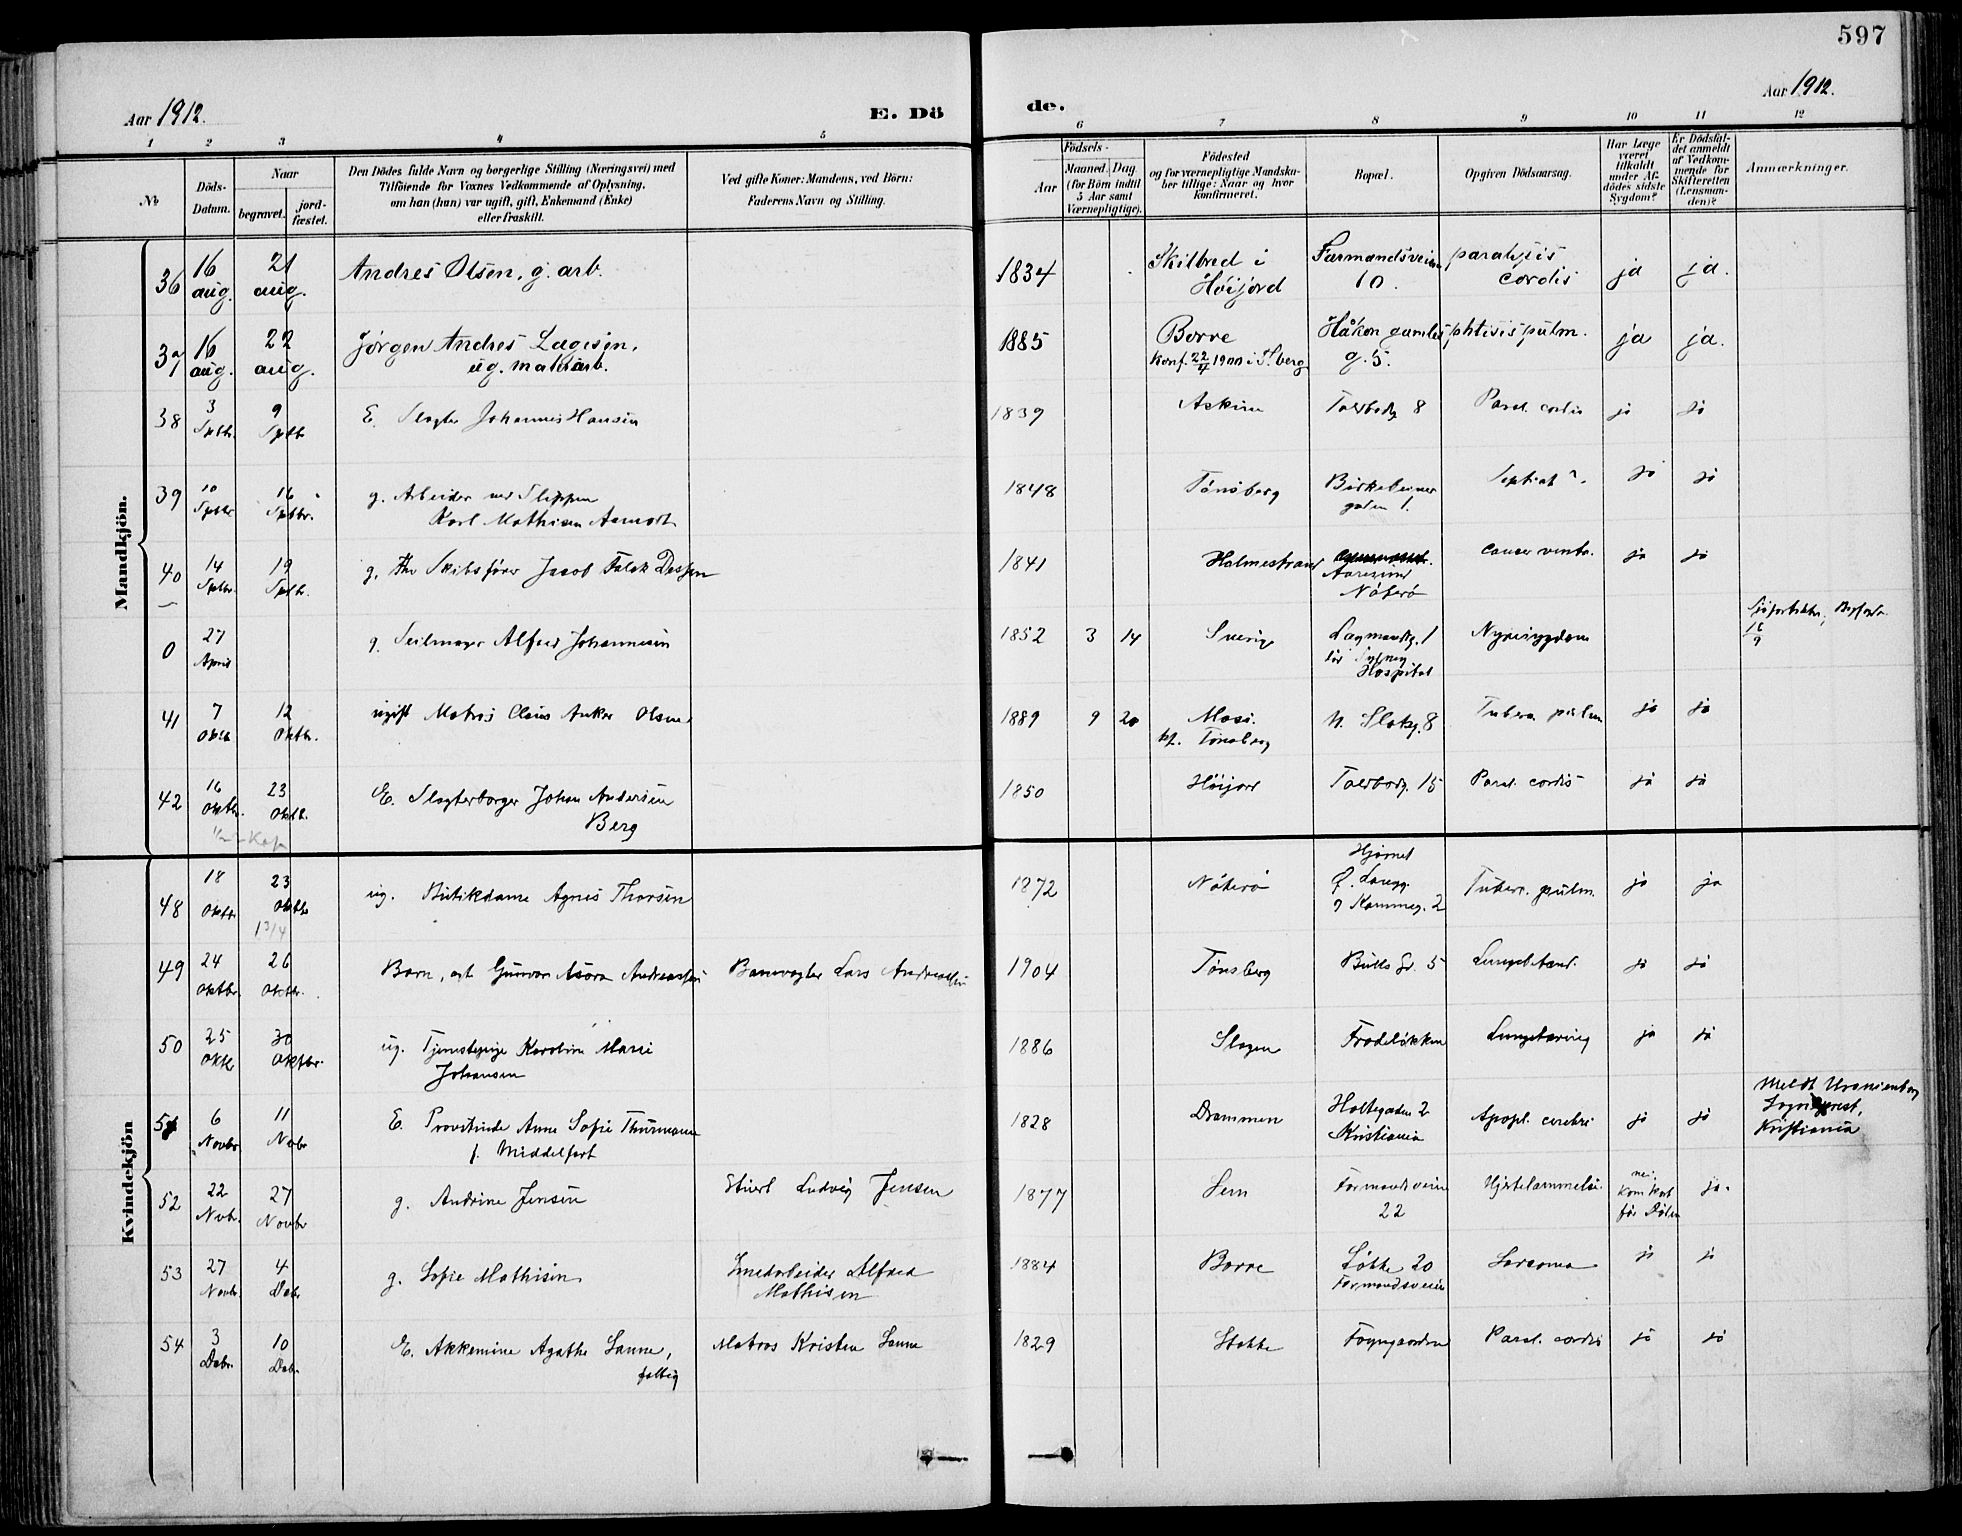 597
Aar 1912.
E. Dö
de.
Aar 1912.
1 2 3 4 5 6 7 8 9 10 11 12
№
Döds-
Datum.
Naar
begravet.
jord-
fæstet.
Den Dödes fulde Navn og borgerlige Stilling (Næringsvei) med
Tilföiende for Voxnes Vedkommende af Oplysning,
om han (hun) var ugift, gift, Enkemand (Enke)
eller fraskilt.
Ved gifte Koner: Mandens, ved Börn:
Faderens Navn og Stilling.
Födsels-
Aar
Maaned.
Dag.
(for Börn indtil
5 Aar samt
Værnepligtige).
Födested
og for værnepligtige Mandska-
ber tillige: Naar og hvor
konfirmeret.
Bopæl.
Opgiven Dödsaarsag.
Har Læge
været
tilkaldt
under Af-
dödes sidste
Sygdom?
Er Dödsfal-
det anmeldt
af Vedkom-
mende for
Skifteretten
(Lensman-
den)?
Anmærkninger.
Mandkjön.
36 16 aug. 21 aug. Andres Olsen, g. arb. 1834 Skilbred i Höijord Farmandsveien 10. paralysis cordis ja ja.
37 16 aug. 22 aug. Jørgen Andres Lagesen, ug. 1885 Borre konf. 22/4 1900 i T.berg Håkon gamles g. 5. phtisis pulm. ja ja.
38 3 Sptbr. 9 Sptbr E. Slagter Johannes Hansen 1839 Askim Toldbodg 8 Paral. cordis ja ja
39 10 Sptbr 16 Sptbr. g. Arbeider ved Slippen
Karl Mathisen 1848 Tönsberg Birkebeiner
gaden 1. ja ja
40 14 Sptbr. 19 Sptbr. g. fhv Skibsfører Jacob Falck 1841 Holmestrand
Nöterö Cancer ventr. ja ja
0 27 April g. Seilmager Alfred Johannesen 1852 3 14 Sverige Lagmandsg. 1
Sydney
Hospital Nyresygdom
18
9
41 7 Oktb 12 Oktbr. ugift Matros Claus Anker Olsen 1889 9 20 Moss.
kf. Tønsberg N. Slotsg. 8 Tuberc. pulm ja ja
42 16 Oktbr. 23 Oktb. E. Slagterborger Johan Andersen
Berg 1850 Höijord Toldbodg. 15 Paral. cordis ja ja
Kvindekjön
48 18 Oktbr. 23 Oktbr ug. Butikdame Agnes Thorsen 1872 Nöterö Hjørnet
Ø. Langg.
og Kammeg. 2 Tuberc. pulm. ja ja
1 3/4
49 24 Oktbr. 26 Oktbr. Barn, Gunvor Andreassen Banevogter Lars Andreassen 1904 Tønsberg Bulls Gd. 5 ja ja
50 25 Oktbr 30 Oktbr. ug. Tjenestepige Karoline Marie
Johansen 1886 Slagen Frodeløkken Lungetæring ja ja
51 6 Novbr 11 Novbr E. Provstinde Anne Sofie Thurmann
f. Middelfart 1828 Drammen Holtegaden 2
Kristiania Apopl. cerebri ja ja Meldt Uranienborg
Sogneprest,
Kristiania
52 22 Nvbr. 27 Novbr g. Andrine Jensen Stuert Ludvig Jensen 1877 Sem Farmandsveien
22 Hjertelammelse nei,
kom kort
før Døden ja.
53 27 Novbr. 4 Debr g. Sofie Mathisen Smedarbeider Alfred
Mathisen 1884 Borre Løkke 20
Farmandsveien Sarcoma ja ja
54 3 Debr. 10 Debr. E. Akkemine Agathe Sanne,
fattig Matros Kristen Sanne 1829 Stokke Paral. cordis ja ja